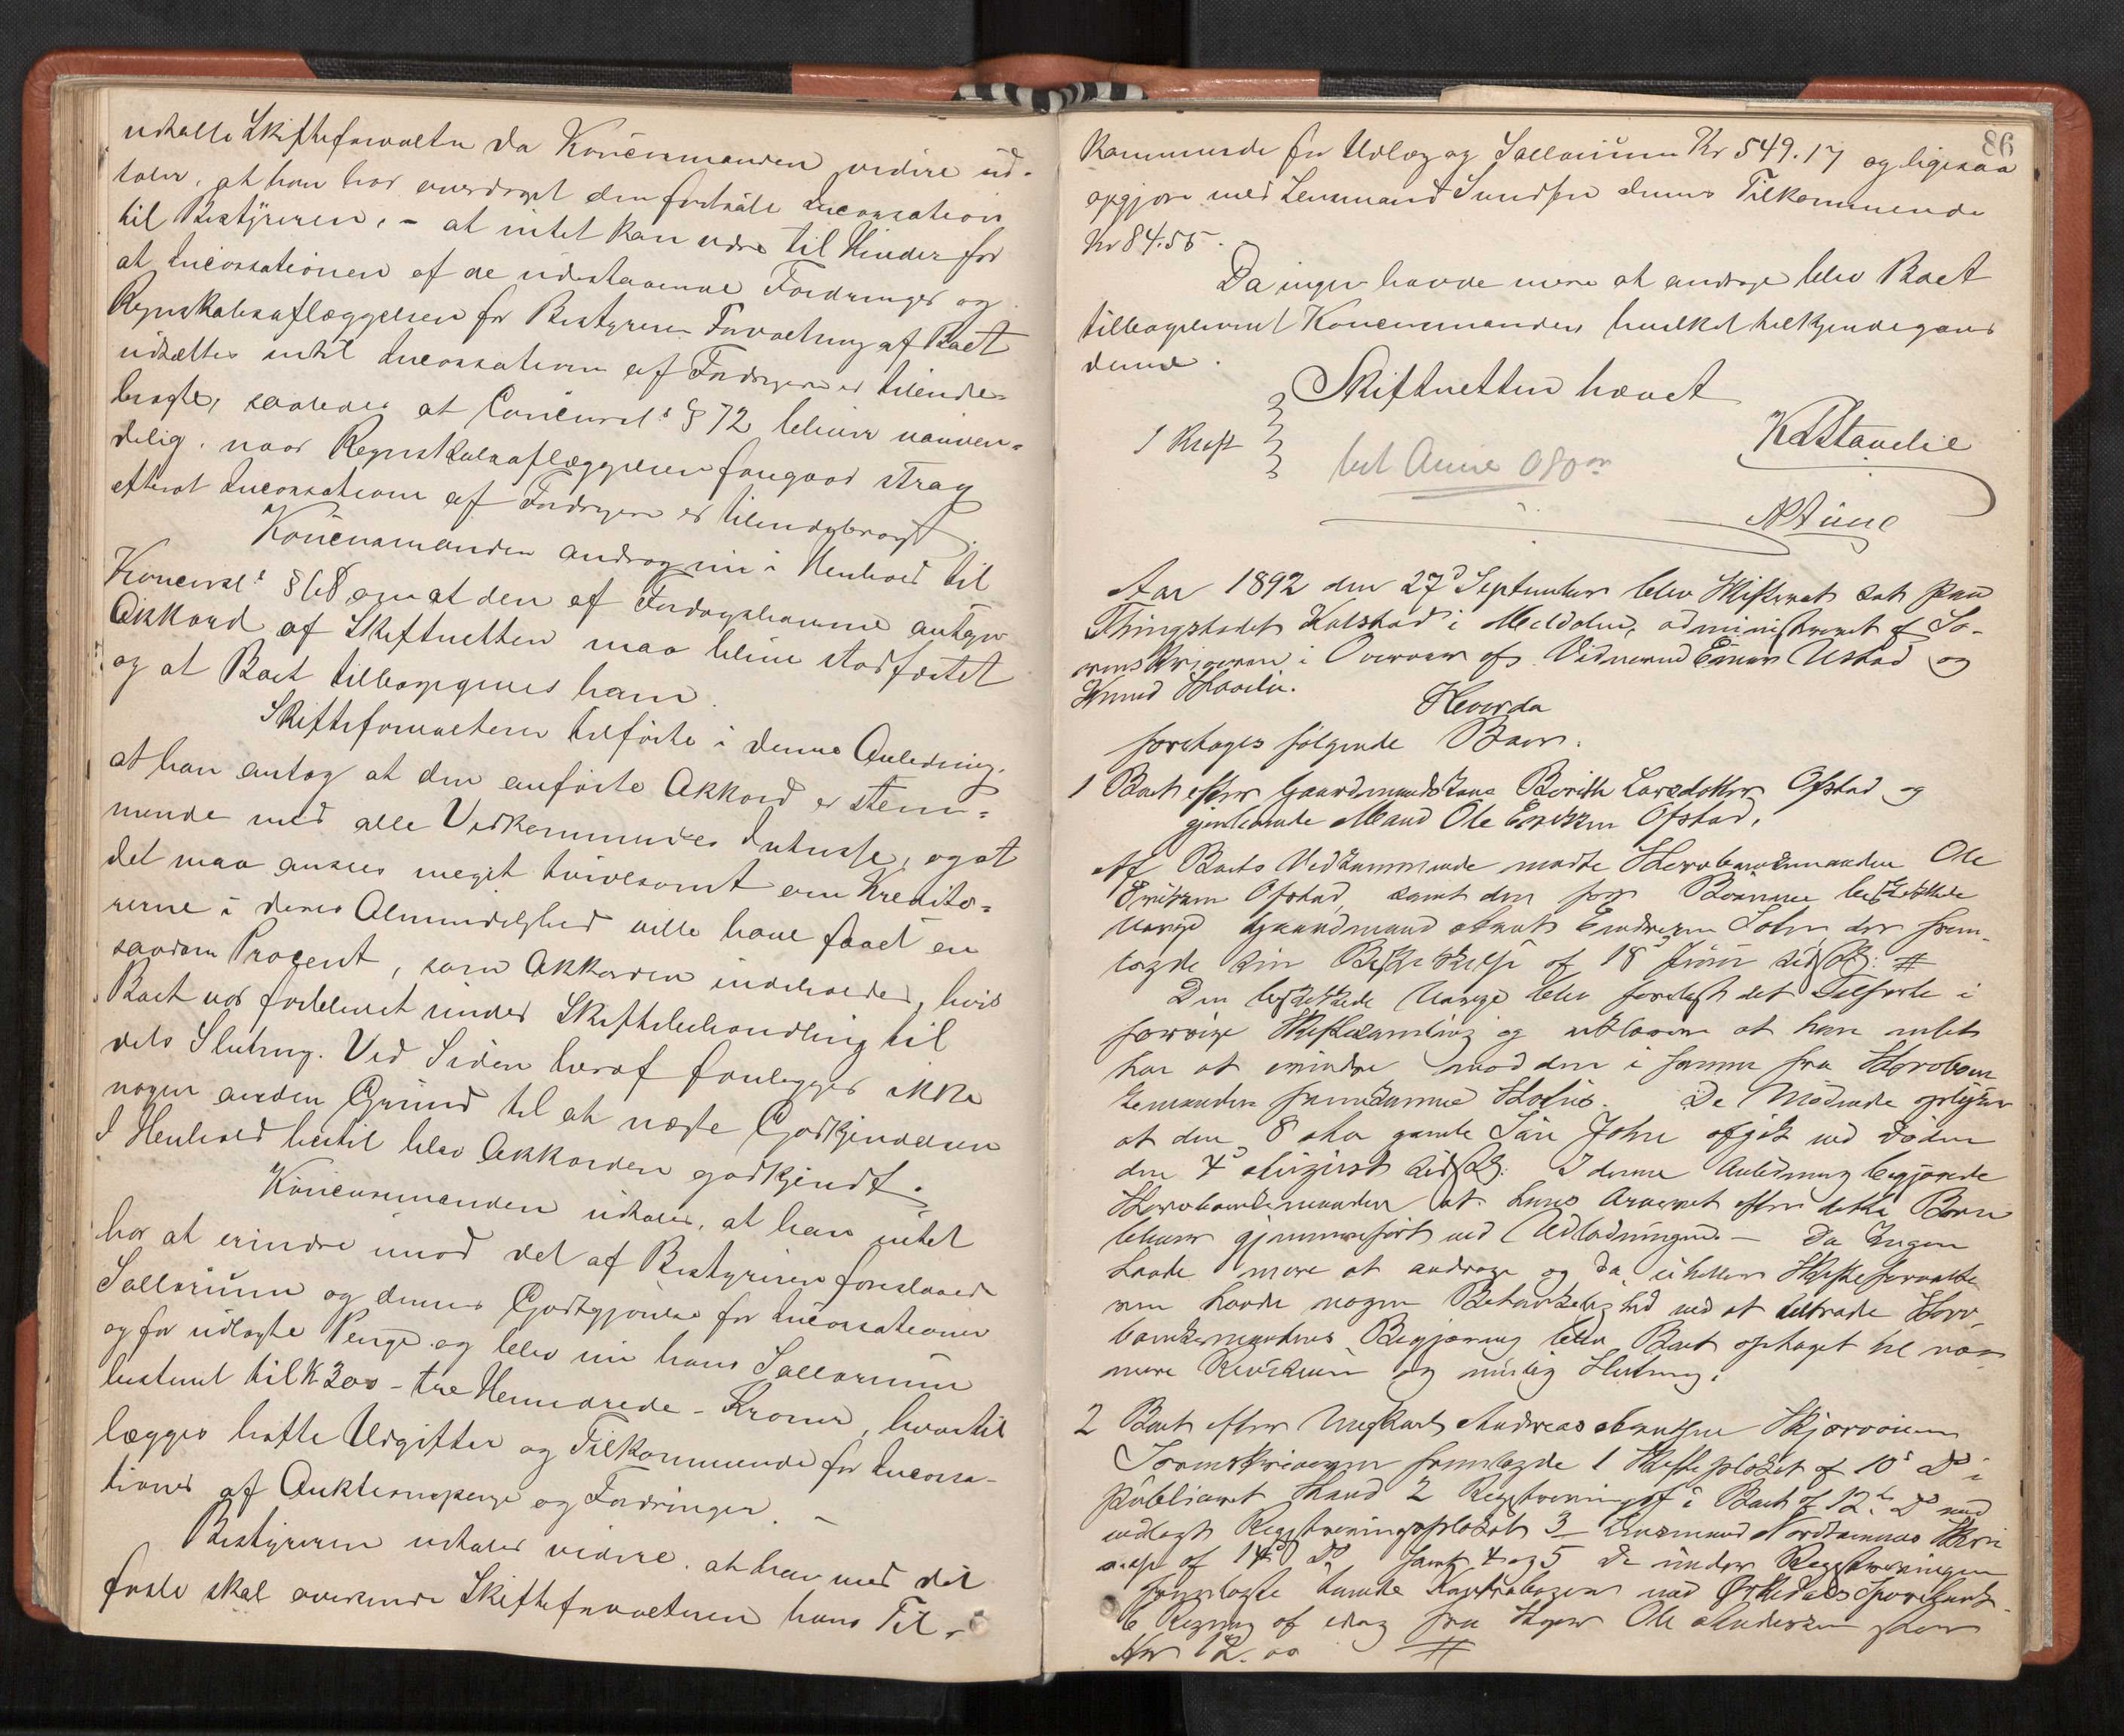 udtalte Skifteforvalter da Koncursmanden videre ud-
taler, at han har overdraget den fortsatte Incassation
til Bestyreren, - at intet kan være til Hinder for
at Incassationen af de udestaaende Fordringer og
Regnskabsaflæggelsen for Bestyreren Forvaltning af Boet
udsættes indtil Incassationen af Fordringerne er tilende-
bragte, saaledes at Concursl.s § 72 bliver nødven-
delig. naar Regnskabsaflæggelsen foregaar strax
efterat Incassationen af Fordringerne er tilendebragt.
Koncursmanden androg nu i Henhold til
Koncursl.s § 68 om at den af Fordringshaverne antagne
Akkord af Skifteretten maa blive stadfæstet
og at Boet tilbagegives ham.
Skifteforvalteren tilførte i denne Anledning,
at han antog at den anførte Akkord er stem-
mende med alle Vedkommendes Interesse, og at
det maa ansees meget tvivlsomt om Kredito-
rerne i deres Almindelighed ville have faaet en
saadan Procent, som Akkorden indeholder, hvis
Boet var forblevet under Skiftebehandling til
dets Slutning. Ved Siden heraf foreligger ikke
nogen anden Grund til at nægte Godkjendelsen
I Henhold hertil blev Akkorden godkjendt.
Koncursmanden udtaler, at han intet
har at erindre imod det af Bestyreren foreslaaede
Sallarium og dennes Godtgjørelse for Incassationer
og for udlagte Penge og blev nu hans Sallarium
bestemt til Kr 300 - tre Hundrede - Kroner, hvortil
lægges hafte Udgifter og Tilkommende for Incassa-
tioner af Auktionspenge og Fordringer. -
Bestyreren udtaler videre. at han med det
første skal oversende Skifteforvalteren hans Til-
86
kommende for Udlæg og Sallarium Kr 549.17 og ligesaa
opgjøre med Lensmand Sund for dennes Tilkommende
Kr 84.55.
Da ingen havde mere at andrage blev Boet
tilbageleveret Koncursmanden hvilket tilkjendegaves
denne.
Skifteretten hævet
1 Rest
bet Aune 080 or
N Aune
Aar 1892 den 27d September blev Skifteret sat paa
Thingstedet Kalstad i Meldalen, administreret af So-
renskriveren i Overvær af Vidnerne Einar Ustad og
Knud
Hvorda
foretoges følgende Boer:
1 Boet efter Gaardmandskone Berith Larsdatter Ofstad og
gjenlevende Mand Ole Eriksen Ofstad.
Af Boets Vedkommende mødte Stervboenkemanden Ole
Eriksen Ofstad, samt den for Børnene beskikkede
Værge Gaardmand Arnt Endresen Solem, der frem-
lagde sin Beskikkelse af 18d Juni sidstl: #
Den beskikkede Værge blev forelæst det Tilførte i
forrige Skiftesamling og erklærede at han intet
har at erindre mod den i samme fra Stervboen-
kemanden fremkomne . De Mødende oplyser
at den 8 Aar gamle Søn John afgik ved Døden
den 4d August sidstl: I denne Anledning begjærede
Stervboenkemanden at hans Arveret efter dette Barn
bliver gjennemført ved Udlodningen. - Da Ingen
havde mere at andrage og da ei heller Skifteforvalte-
ren havde nogen Betænkelighed ved at tiltræde Sterv-
boenkemandens Begjæring blev Boet optaget til nær-
mere Revision og mulig Slutning.
2 Boet efter Ungkarl Andreas Arntsen Skjærvøien
Sorenskriveren fremlagde 1 Skifteplakat af 10d Ds i
publiceret Stand 2 Registreringsf. i Boet af 12te Ds med
vedlagt Registreringsplakat 3 Lensmand Skri-
velse af 14d Ds samt 4 og 5 De under Registreringen
forelagte tvende Kontrabøger med Ørkedals Sparebank
6 Regning af idag fra Ole Andersen stor
Kr 12.00 #